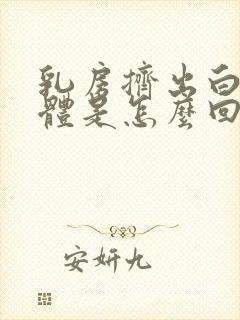 乳房擠出白
體是怎麼回
安妍九